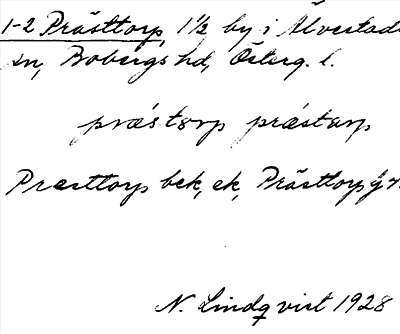 1-2 Prästtorp, 1 1/2 by i Älvestads
sn, Bobergs hd, Österg. l.
præ´stɔrp præ´starp
Præsttorp bek, ek, Prästtorp
N. Lindqvist 1928